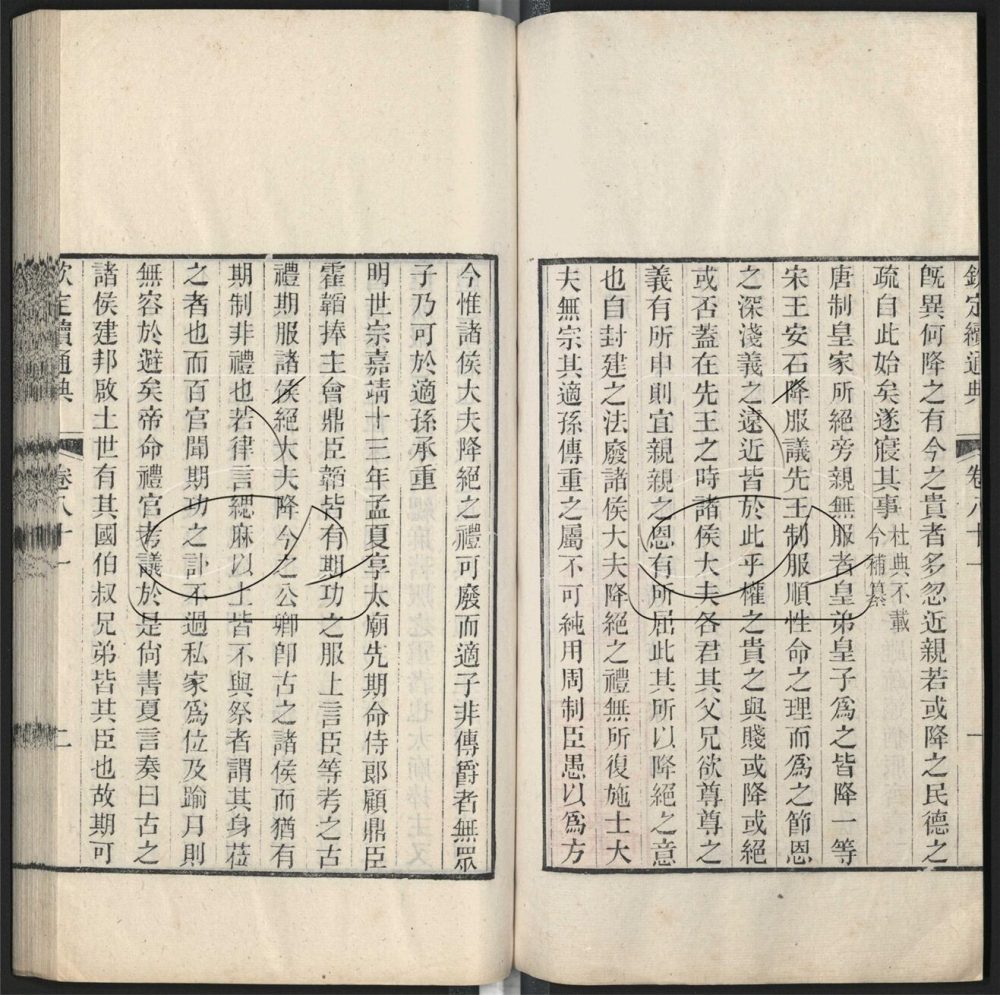 欽定續通典 卷八十 一
旣異何降之有今之貴者多忽近親若或降之民德之
疏自此始矣遂寢其事杜典不載今補纂
唐制皇家所絕旁親無服者皇弟皇子爲之皆降一等
宋王安石降服議先王制服順性命之理而爲之節恩
之深淺義之遠近皆於此乎權之貴之與賤或降或絕
或否蓋在先王之時諸侯大夫各君其父兄欲尊尊之
義有所申則宜親親之恩有所屈此其所以降絕之意
也自封建之法廢諸侯大夫降絕之禮無所復施士大
夫無宗其適孫傳重之屬不可純用周制臣愚以爲方
今惟諸侯大夫降絕之禮可廢而適子非傳爵者無眾
子乃可於適孫承重
明世宗嘉靖十三年孟夏享太廟先期命侍郎顧鼎臣
霍韜捧主會鼎臣韜皆有期功之服上言臣等考之古
禮期服諸侯絕大夫降今之公卿卽古之諸侯而猶有
期制非禮也若律言緦麻以上皆不與祭者謂其身莅
之者也而百官聞期功之訃不過私家爲位及踰月則
無容於避矣帝命禮官考議於是尙書夏言奏曰古之
諸侯建邦啟土世有其國伯叔兄弟皆其臣也故期可
欽定續通典 卷八十一 二